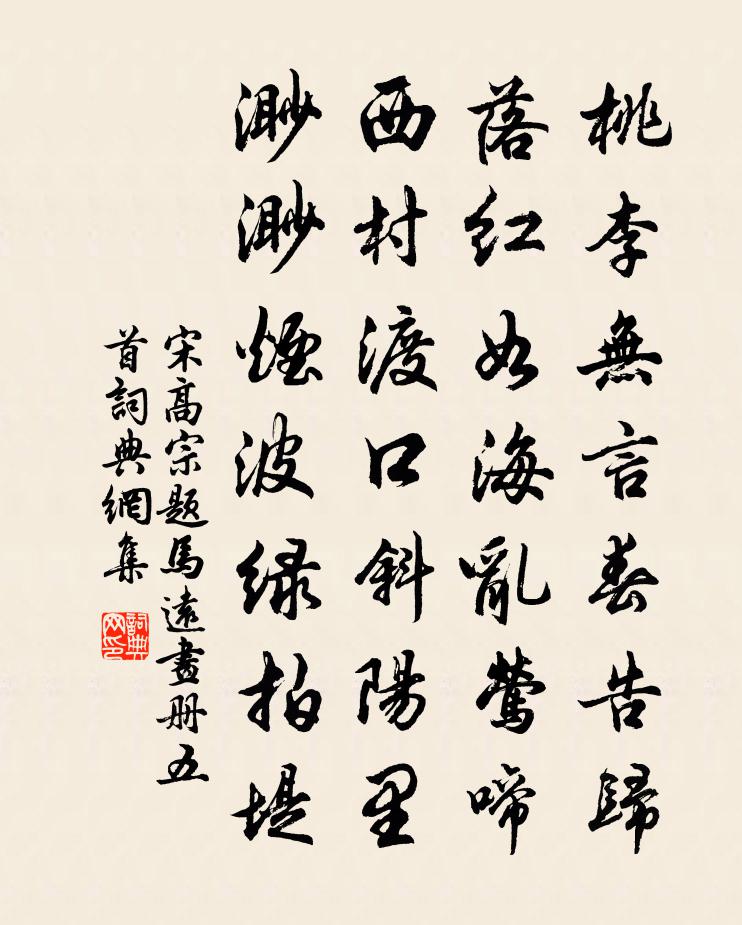 桃李無言春告歸
落紅如海亂鶯啼
西村渡口斜陽里
渺渺煙波緑拍堤
宋高宗題馬遠畫册五
首詞典網集
詞典
网印